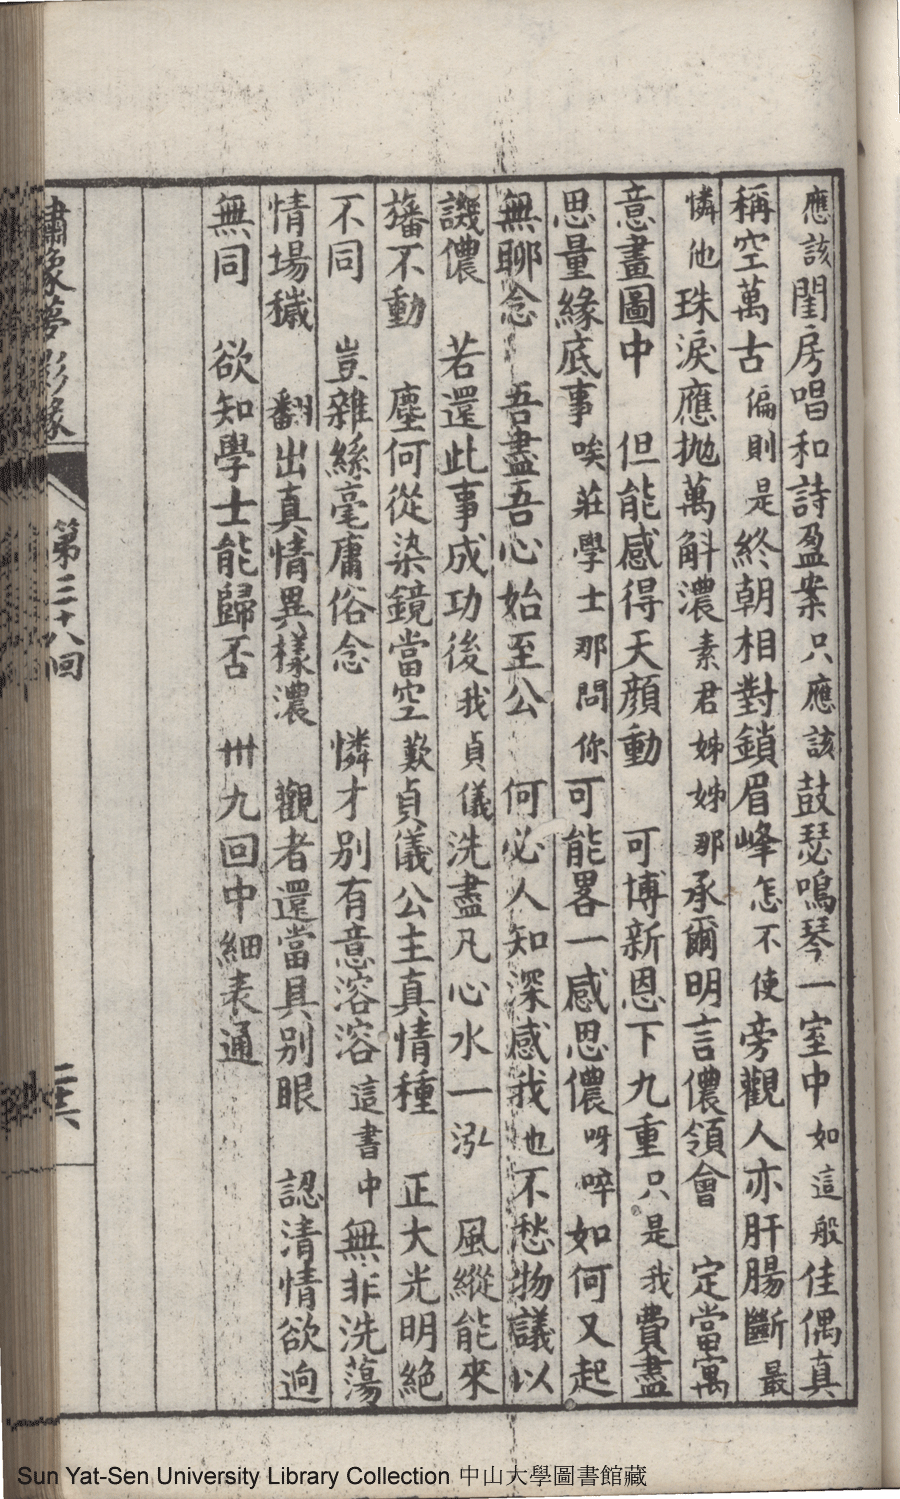 應該閨房唱和詩盈案只應該鼓瑟鳴琴一室中如這般佳偶真
稱空萬古偏則是終朝相對鎖眉峰怎不使旁觀人亦肝腸斷最
憐他珠淚應拋萬斛濃素君姊姊那承爾明言儂領會　定當寓
意畫圖中　但能感得天顏動　可博新恩下九重只是我費盡
思量緣底事唉莊學士那問你可能畧一感思儂呀啐如何又起
無聊念　吾盡吾心始至公　何必人知深感我也不愁物議以
譏儂　若還此事成功後我貞儀洗盡凡心水一泓　風縱能來
旛不動　塵何從染鏡當空歎貞儀公主真情種　正大光明絕
不同　豈雜絲毫庸俗念　憐才別有意溶溶這書中無非洗蕩
情場穢　翻出真情異樣濃　觀者還當具別眼　認清情欲迥
無同　欲知學士能歸否　卅九回中細表通
繡像夢影緣　第三十八回
Sun Yat-Sen University Library Collection 中山大學圖書館藏